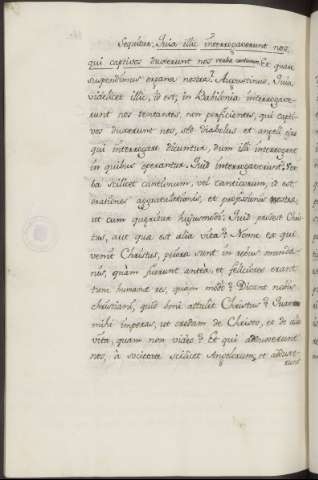 Sequitur: Quia illic interrogaverunt nos,
qui captivos duxerunt nos verba cantionum. Et quare
suspendimus organa nostra? Augustinus. Quia
videlicet illic, id est, in Babilonia interrogave-
runt nos tentantes, non proficientes, qui capti-
vos duxerunt nos, diabolus et angeli ejus
qui interrogare dicuntur, dum illi interrogant
in quibus operantur. Quid interrogaverunt? Ver-
ba scilicet cantionum, vel canticorum, id est
orationes, et professionis nostra,
ut cum quæritur hujusmodi: Quid prodest Chris-
tus, aut qua est alia vita? Nonne ex quo
venit Christus, pejora sunt in rebus monda-
nis, quàm fuerunt antea, et feliciores erant
tum humanæ res, quàm modò? Dicant nobis
christiani, quid boni attulit Christus? Quare
mihi imperas, ut credam de Christo, et de alia
vita, quam non video? Et qui adduxerunt
nos, à societate scilicet Angelorum, et adduxe-
runt